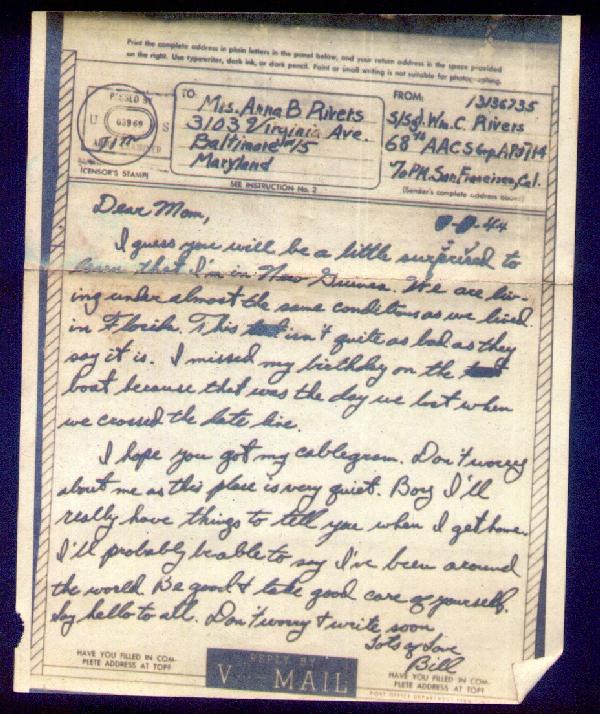 Print the complete address in plain letters in the panel below, and your return address in the space provided
on the right. Use typewriter, dark ink, or dark pencil. Faint or small writing is not suitable for photographing.
PASSED BY
U S
ARMY EXAMINER
CENSOR'S STAMP)
TO:
Mrs. Anna B Rivers
3103 Virginia Ave.
Baltimore 15
Maryland
SEE INSTRUCTION No. 2
FROM:
13136735
S/Sgt. Wm. C. Rivers
68th AACS Grp. APO 714
% P.M. San Francisco, Cal.
(Sender's complete address above)
Dear Mom,
44
I guess you will be a little surprised to
learn that I'm in New Guinea. We are liv-
ing under almost the same conditions as we lived
in Florida. This isn't quite as bad as they
say it is. I missed my birthday on the
boat because that was the day we lost when
we crossed the date line.
I hope you got my cablegram. Don't worry
about me as this place is very quiet. Boy I'll
really have things to tell you when I get home.
I'll probably be able to say I've been around
the world. Be good & take good care of yourself.
Say hello to all. Don't worry & write soon
Lots of Love
Bill
HAVE YOU FILLED IN COM-
PLETE ADDRESS AT TOP?
REPLY BY
V MAIL
HAVE YOU FILLED IN COM-
PLETE ADDRESS AT TOP?
POST OFFICE DEPARTMENT